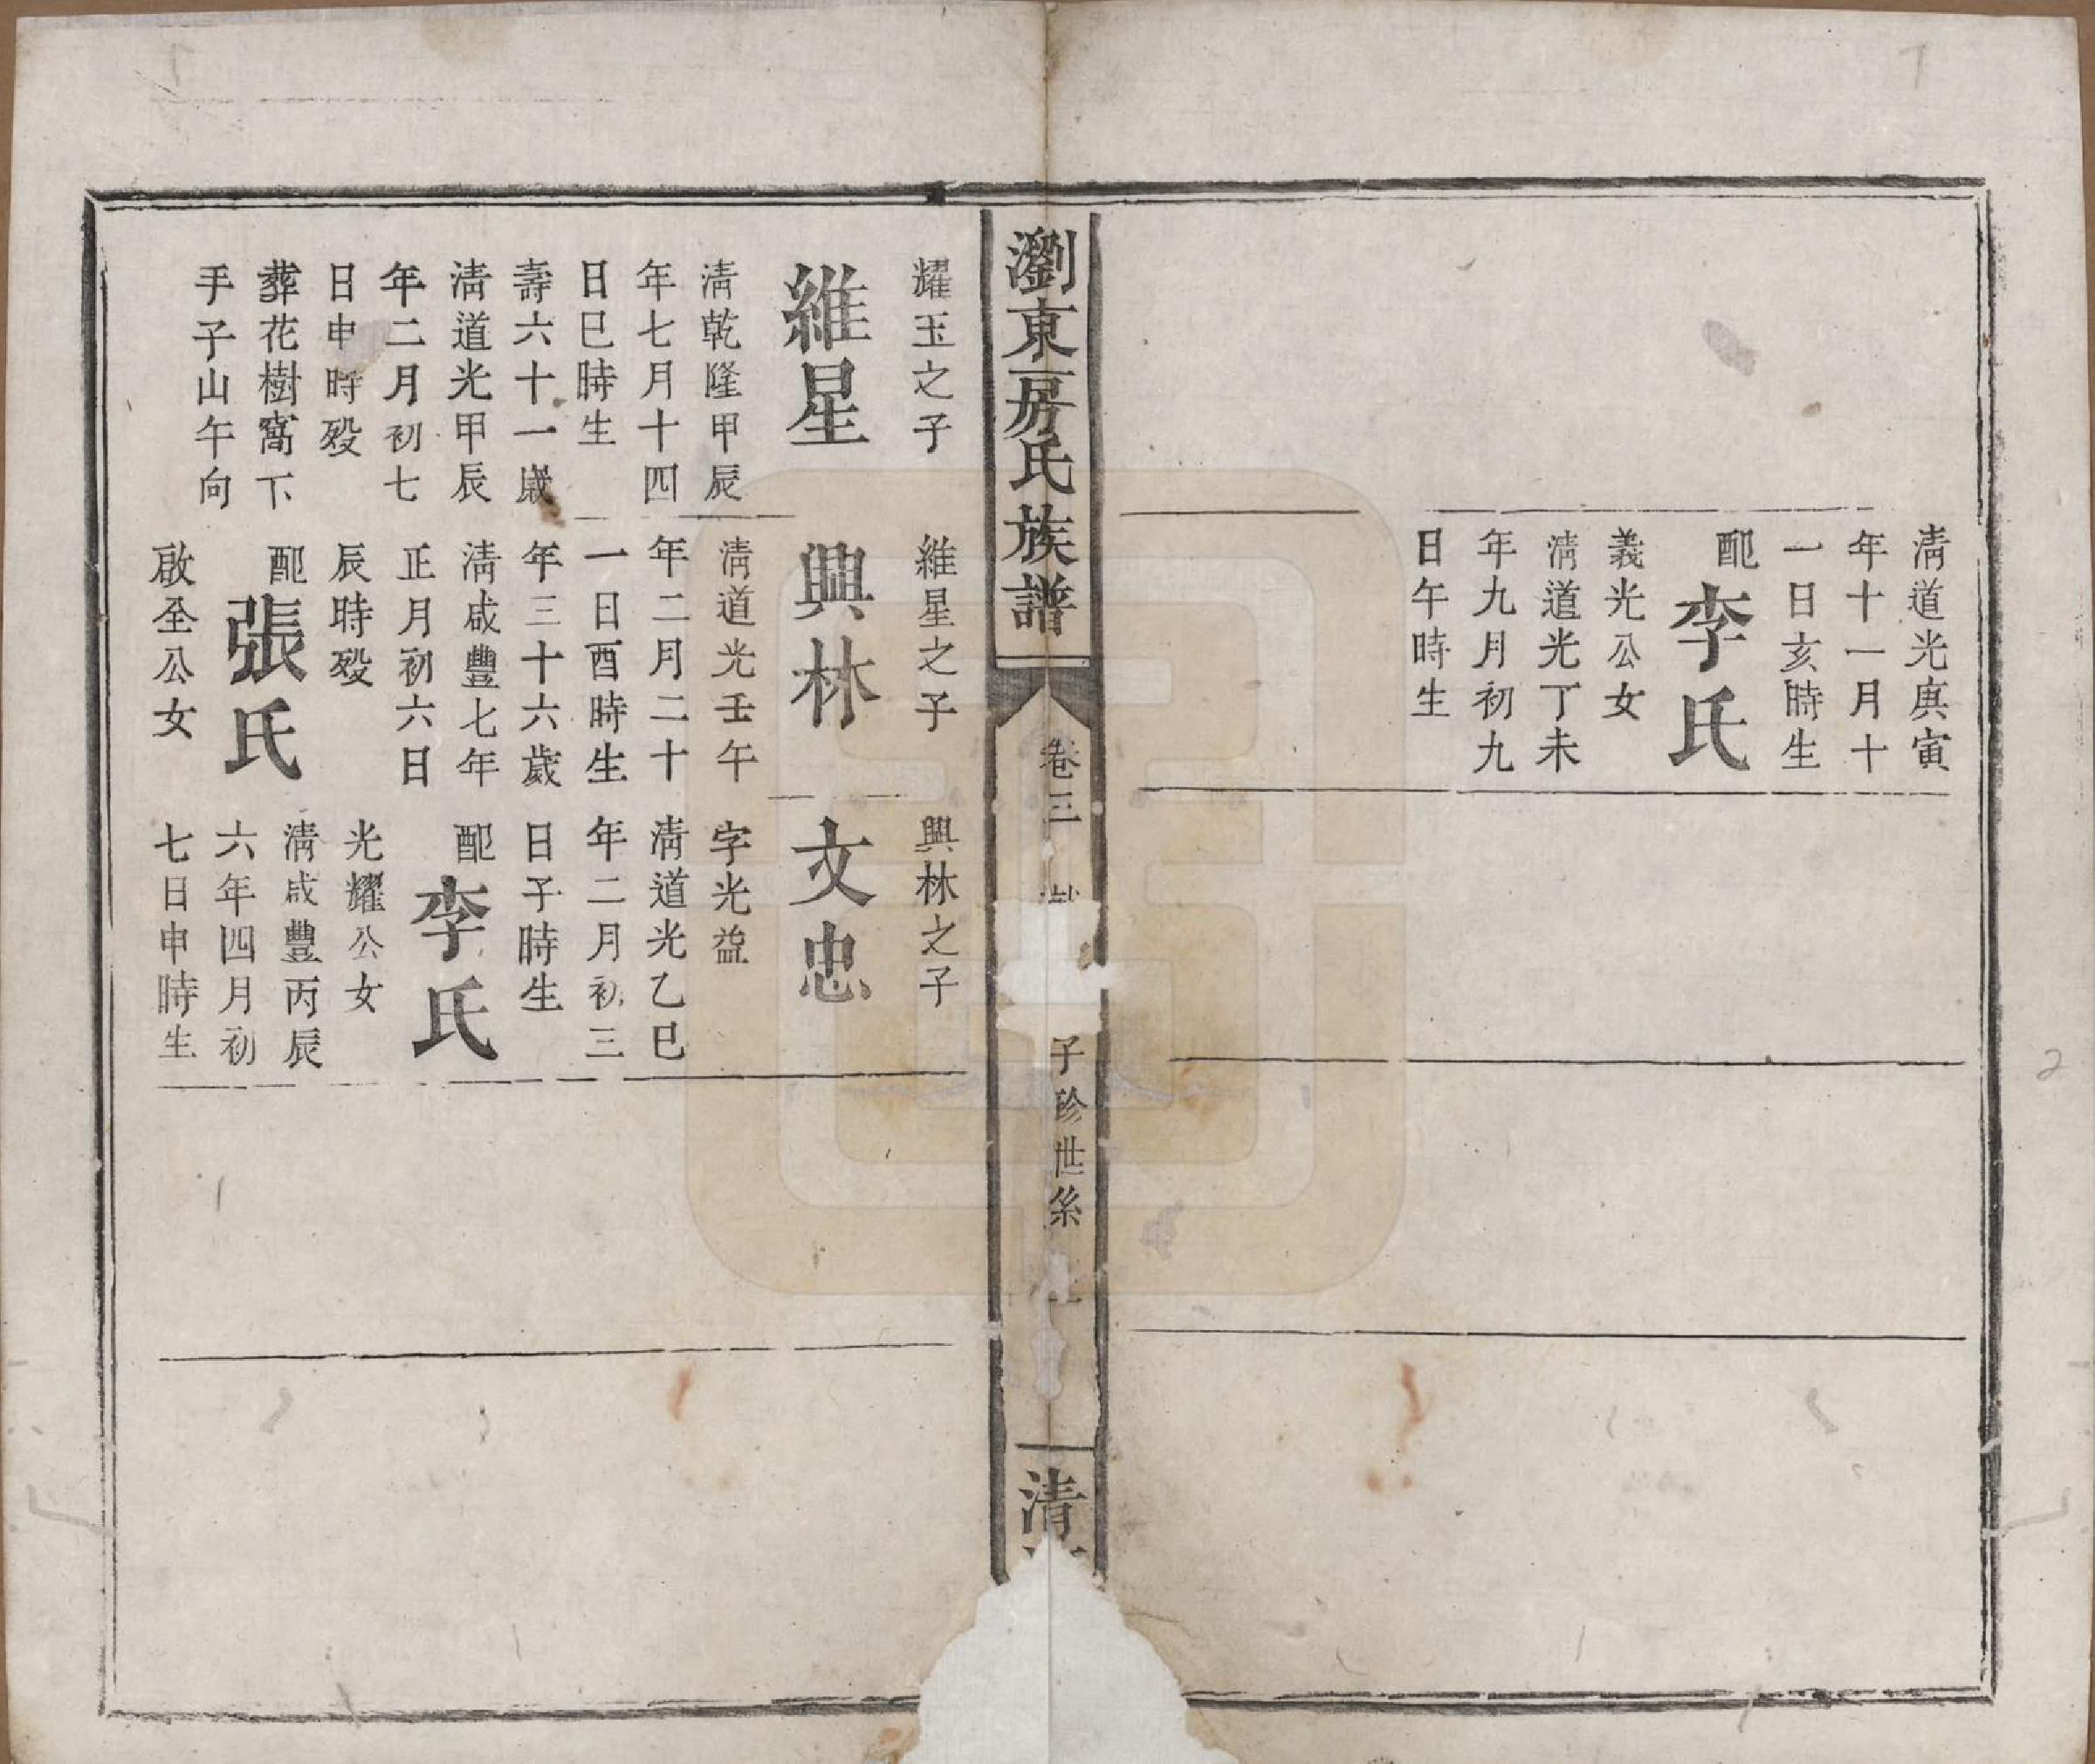 清道光庚寅
年十一月十
一日亥時生
配李氏
義光公女
清道光丁未
年九月初九
日午時生
瀏東房氏族譜
卷三
子珍世系
清
耀玉之子
維星
清乾隆甲辰
年七月十四
日巳時生
壽六十一歲
清道光甲辰
年二月初七
日申時殁
葬花樹窩下
手子山午向
維星之子
興林
清道光壬午
年二月二十
一日酉時生
年三十六歲
清咸豐七年
正月初六日
辰時殁
配張氏
啟全公女
興林之子
文忠
字光益
清道光乙巳
年二月初三
日子時生
配李氏
光耀公女
清咸豐丙辰
六年四月初
七日申時生